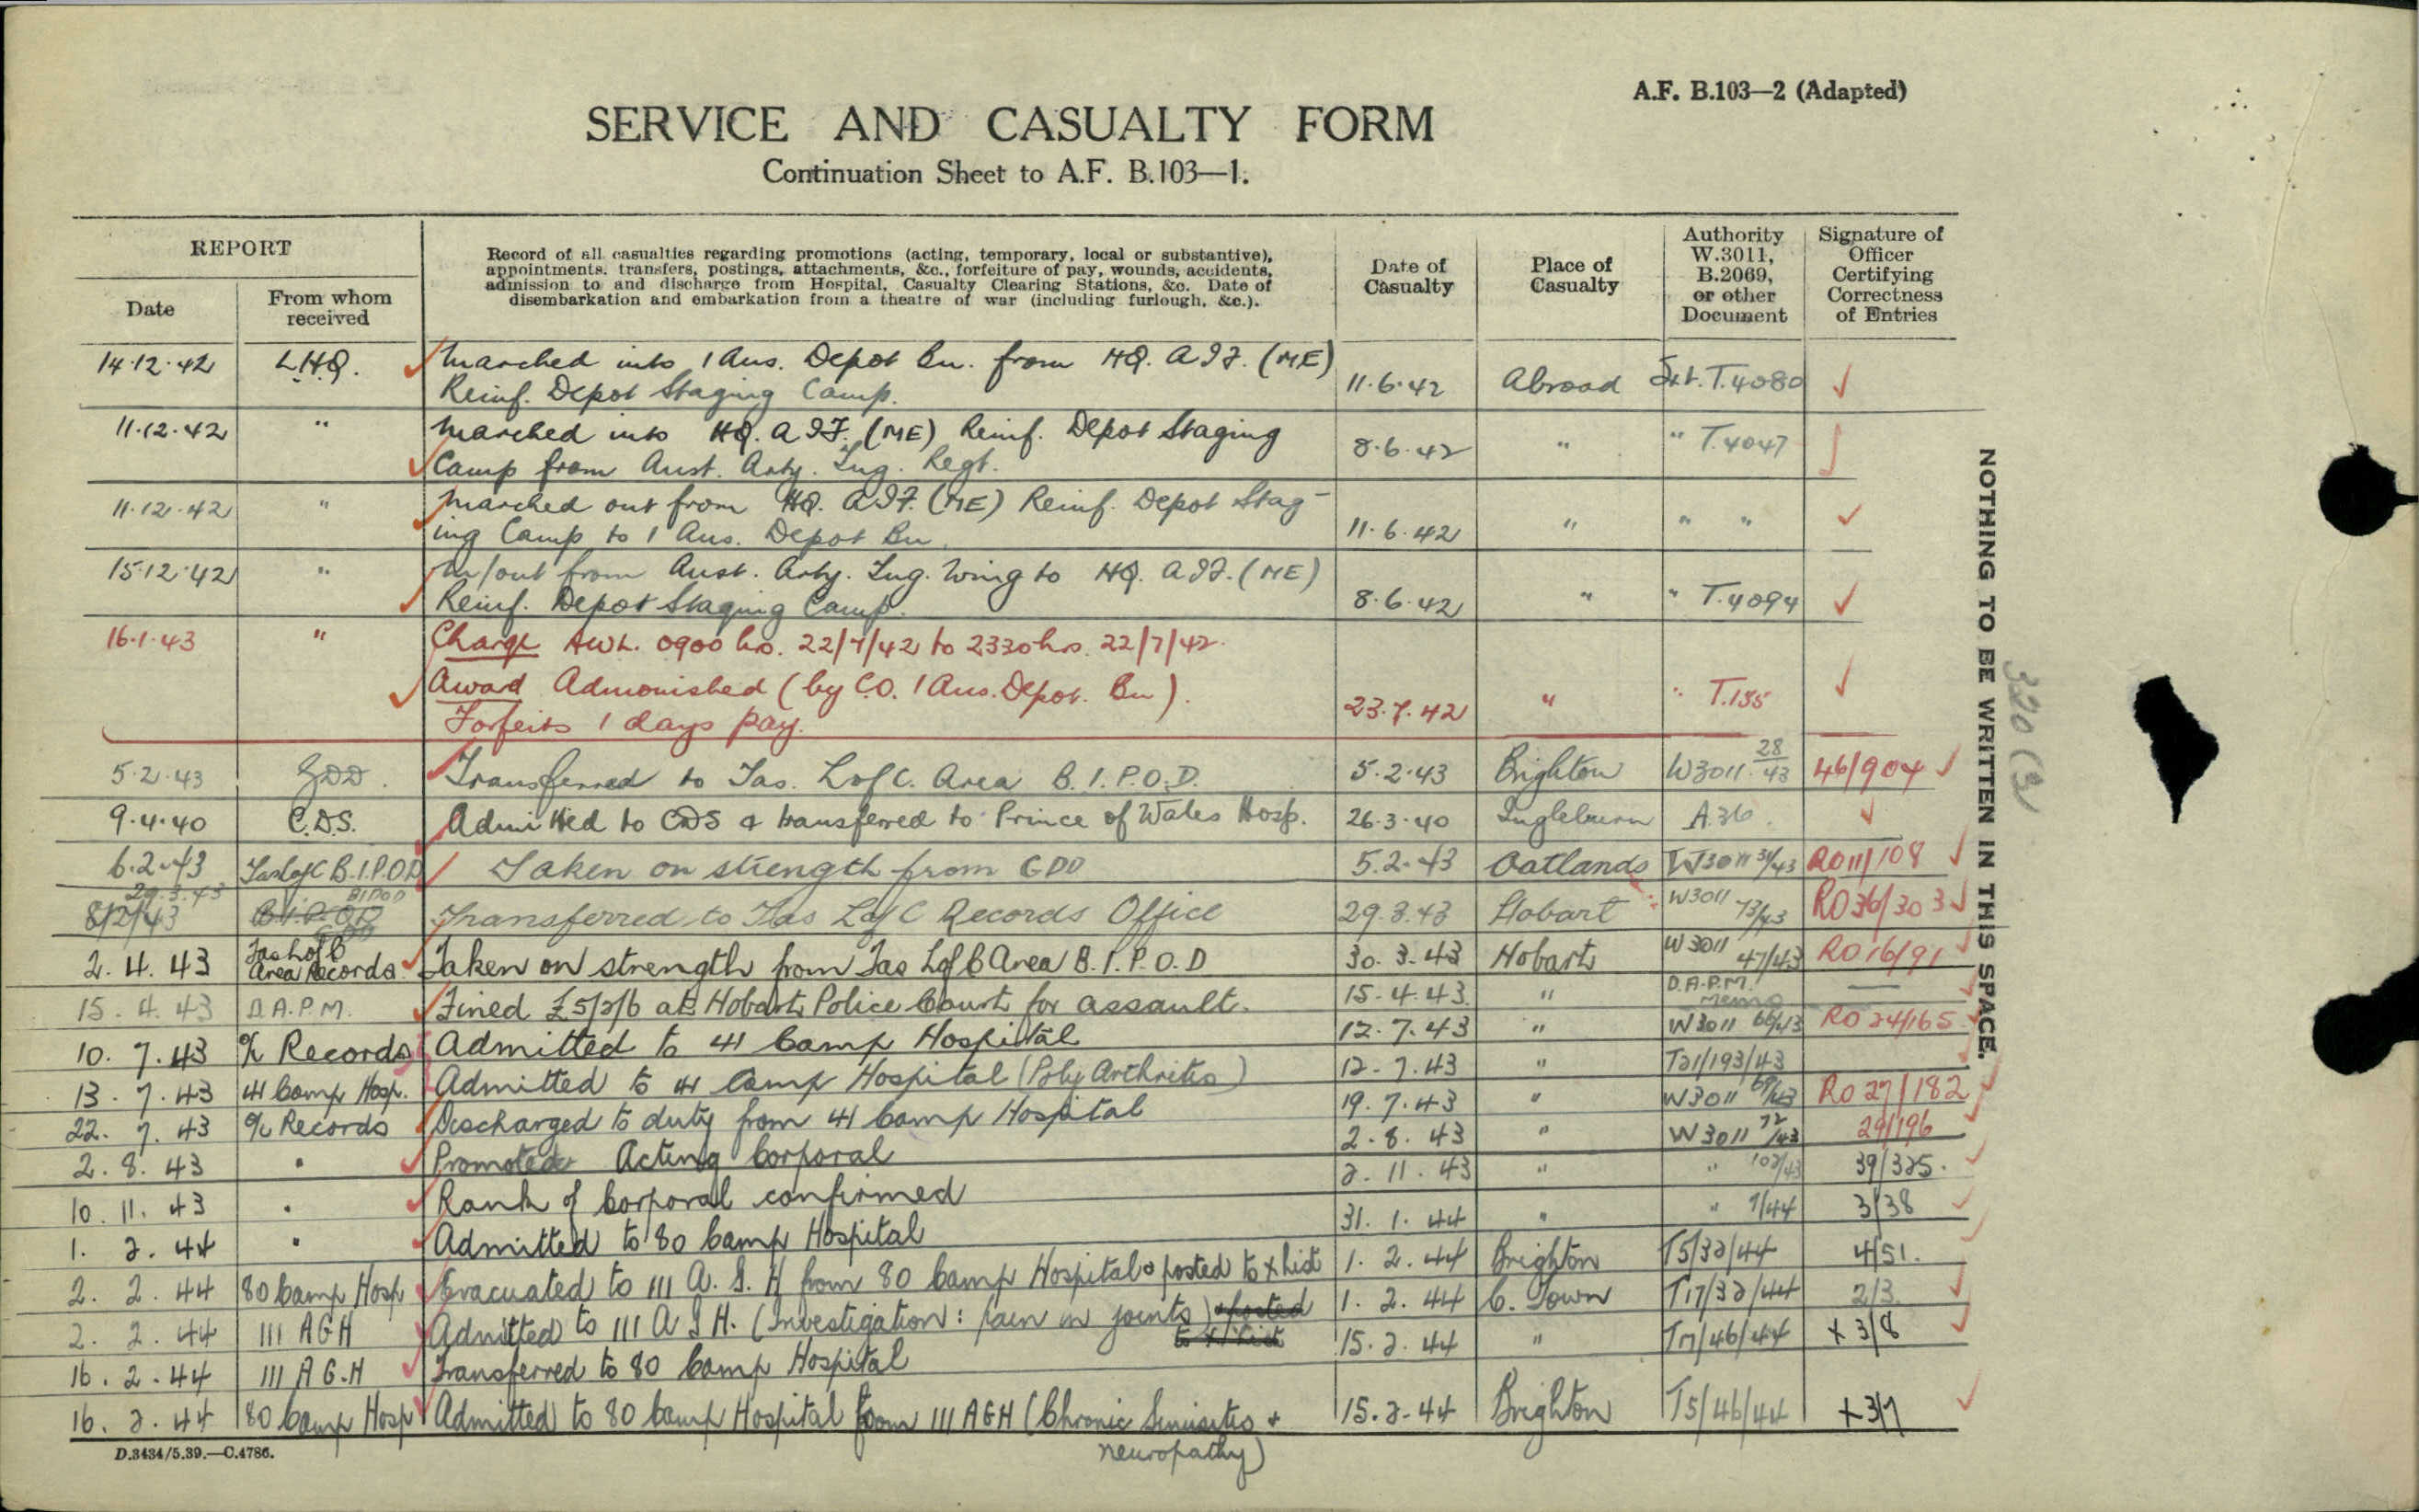 A.F. B.103—2 (Adapted)
SERVICE AND CASUALTY FORM
Continuation Sheet to A.F. B.103—1.
REPORT
Date
From whom received
Record of all casualties regarding promotions (acting, temporary, local or substantive),
appointments. transfers, postings, attachments, &c., forfeiture of pay, wounds, accidents,
admission to and discharge from Hospital, Casualty Clearing Stations, &c. Date of
disembarkation and embarkation from a theatre of war (including furlough, &c.).
Date of Casualty
Place of Casualty
Authority W.3011, B.2069, or other Document
Signature of Officer Certifying Correctness of Entries
14.12.42 L.H.Q. Marched into 1 Aus. Depot Bn. from HQ. AIF. (ME)
Reinf. Depot Staging Camp. 11.6.42 Abroad T.4080
11.12.42 " Marched into HQ. AIF. (ME) Reinf. Depot Staging
Camp from Aust. Arty. Trg. Regt. 8.6.42 " " T.4047
11.12.42 " Marched out from HQ. AIF. (ME) Reinf. Depot Stag-
ing Camp to 1 Aus. Depot Bn. 11.6.42 " " "
15.12.42 " M/out from Aust. Arty. Trg. Wing to HQ. AIF. (ME)
Reinf. Depot Staging Camp. 8.6.42 " " T.4094
16.1.43 " Charge AWL. 0900 hrs. 22/7/42 to 2330 hrs. 22/7/42.
Award Admonished (by C.O. 1 Aus. Depot. Bn).
Forfeits 1 days pay. 23.7.42 " " T.155
5.2.43 GDD. Transferred to Tas. L of C. Area B.I.P.O.D. 5.2.43 Brighton W3011 28/43 46/904
9.4.40 C.D.S. Admitted to CDS & transferred to Prince of Wales Hosp. 26.3.40 Ingleburn A.36.
6.2.43 Tas L of C B.I.P.O.D Taken on strength from GDD 5.2.43 Oatlands W3011 31/43 RO11/108
29.3.43 BIPOD
8/2/43 B.I.P.O.D Transferred to Tas L of C Records Office 29.3.43 Hobart W3011 73/43 RO36/303
2.4.43 Tas L of C Area Records. Taken on strength from Tas L of C Area B.I.P.O.D 30.3.43 Hobart W3011 47/43 RO16/91
15.4.43 D.A.P.M. Fined £5/2/6 at Hobart Police Court for assault. 15.4.43. " D.A.P.M. Memo
10.7.43 O/c Records Admitted to 41 Camp Hospital 12.7.43 " W3011 66/43 RO 24/165
13.7.43 41 Camp Hosp. Admitted to 41 Camp Hospital (Poly Arthritis) 12.7.43 " T21/193/43
22.7.43 O/c Records Discharged to duty from 41 Camp Hospital 19.7.43 " W3011 69/43 RO 27/182
2.8.43 " Promoted Acting Corporal 2.8.43 " W3011 72/43 29/196
10.11.43 " Rank of Corporal confirmed 2.11.43 " " 102/43 39/325.
1.2.44 " Admitted to 80 Camp Hospital 31.1.44 " " 7/44 3/38
2.2.44 80 Camp Hosp Evacuated to 111 A.G.H from 80 Camp Hospital & posted to X list 1.2.44 Brighton T5/32/44 4/51.
2.2.44 111 AGH Admitted to 111 A G H. (Investigation: pain in joints) & posted to X list 1.2.44 C. Town T17/32/44 2/3.
16.2.44 111 AG.H Transferred to 80 Camp Hospital 15.2.44 " T17/46/44 X 3/8
16.2.44 80 Camp Hosp Admitted to 80 Camp Hospital from 111 AGH (Chronic Sinusitis & 15.2.44 Brighton T5/46/44 X 3/7
neuropathy)
D.3434/5.39.—C.4786.
NOTHING TO BE WRITTEN IN THIS SPACE.